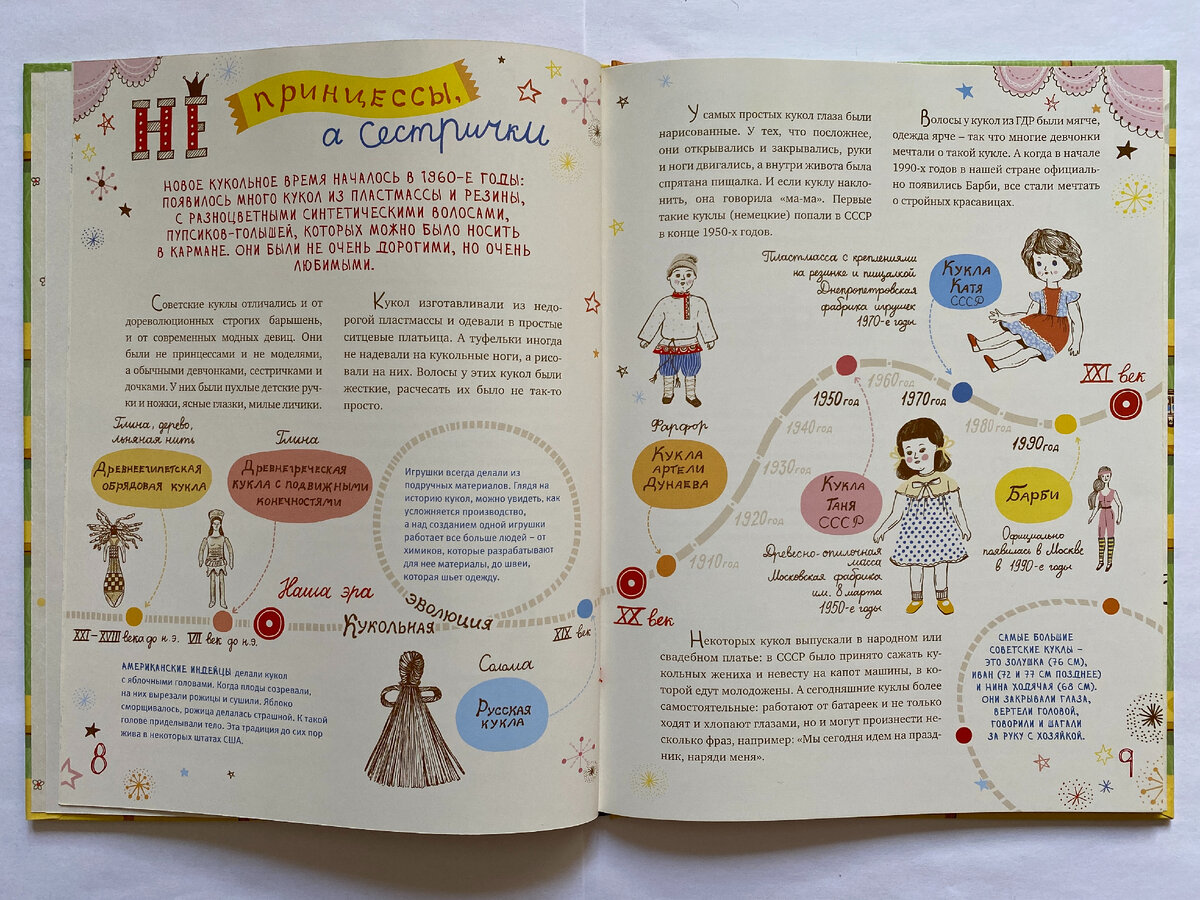 НЕ
ПРИНЦЕССЫ,
а Сестрички
НОВОЕ КУКОЛЬНОЕ ВРЕМЯ НАЧАЛОСЬ В 1960-Е ГОДЫ:
ПОЯВИЛОСЬ МНОГО КУКОЛ ИЗ ПЛАСТМАССЫ И РЕЗИНЫ,
С РАЗНОЦВЕТНЫМИ СИНТЕТИЧЕСКИМИ ВОЛОСАМИ,
ПУПСИКОВ-ГОЛЫШЕЙ, КОТОРЫХ МОЖНО БЫЛО НОСИТЬ
В КАРМАНЕ. ОНИ БЫЛИ НЕ ОЧЕНЬ ДОРОГИМИ, НО ОЧЕНЬ
ЛЮБИМЫМИ.
Советские куклы отличались и от
дореволюционных строгих барышень,
и от современных модных девиц. Они
были не принцессами и не моделями,
а обычными девчонками, сестричками и
дочками. У них были пухлые детские руч-
ки и ножки, ясные глазки, милые личики.
Кукол изготавливали из недо-
рогой пластмассы и одевали в простые
ситцевые платьица. А туфельки иногда
не надевали на кукольные ноги, а рисо-
вали на них. Волосы у этих кукол были
жесткие, расчесать их было не так-то
просто.
Глина, дерево,
льняная нить
Древнеегипетская
обрядовая кукла
Глина
Древнегреческая
кукла с подвижными
конечностями
Игрушки всегда делали из
подручных материалов. Глядя на
историю кукол, можно увидеть, как
усложняется производство,
а над созданием одной игрушки
работает все больше людей – от
химиков, которые разрабатывают
для нее материалы, до швеи,
которая шьет одежду.
Наша эра
Кукольная эволюция
XXI–XVIII века до н.э.
VII век до н.э.
XIX век
АМЕРИКАНСКИЕ ИНДЕЙЦЫ делали кукол
с яблочными головами. Когда плоды созревали,
на них вырезали рожицы и сушили. Яблоко
сморщивалось, рожица делалась страшной. К такой
голове приделывали тело. Эта традиция до сих пор
жива в некоторых штатах США.
Солома
Русская
кукла
8
У самых простых кукол глаза были
нарисованные. У тех, что посложнее,
они открывались и закрывались, руки
и ноги двигались, а внутри живота была
спрятана пищалка. И если куклу накло-
нить, она говорила «ма-ма». Первые
такие куклы (немецкие) попали в СССР
в конце 1950-х годов.
Волосы у кукол из ГДР были мягче,
одежда ярче – так что многие девчонки
мечтали о такой кукле. А когда в начале
1990-х годов в нашей стране официаль-
но появились Барби, все стали мечтать
о стройных красавицах.
Пластмасса с креплениями
на резинке и пищалкой
Днепропетровская
фабрика игрушек
1970-е годы
Кукла
Катя
СССР
XXI век
1910 год
1920 год
1930 год
1940 год
1950 год
1960 год
1970 год
1980 год
1990 год
Фарфор
Кукла
артели
Дунаева
Кукла
Таня
СССР
Древесно-опилочная
масса
Московская фабрика
им. 8 марта
1950-е годы
Барби
Официально
появилась в Москве
в 1990-е годы
XX век
Некоторых кукол выпускали в народном или
свадебном платье: в СССР было принято сажать ку-
кольных жениха и невесту на капот машины, в ко-
торой едут молодожены. А сегодняшние куклы более
самостоятельные: работают от батареек и не только
ходят и хлопают глазами, но и могут произнести не-
сколько фраз, например: «Мы сегодня идем на празд-
ник, наряди меня».
САМЫЕ БОЛЬШИЕ
СОВЕТСКИЕ КУКЛЫ –
ЭТО ЗОЛУШКА (76 СМ),
ИВАН (72 И 77 СМ ПОЗДНЕЕ)
И НИНА ХОДЯЧАЯ (68 СМ).
ОНИ ЗАКРЫВАЛИ ГЛАЗА,
ВЕРТЕЛИ ГОЛОВОЙ,
ГОВОРИЛИ И ШАГАЛИ
ЗА РУКУ С ХОЗЯЙКОЙ.
9